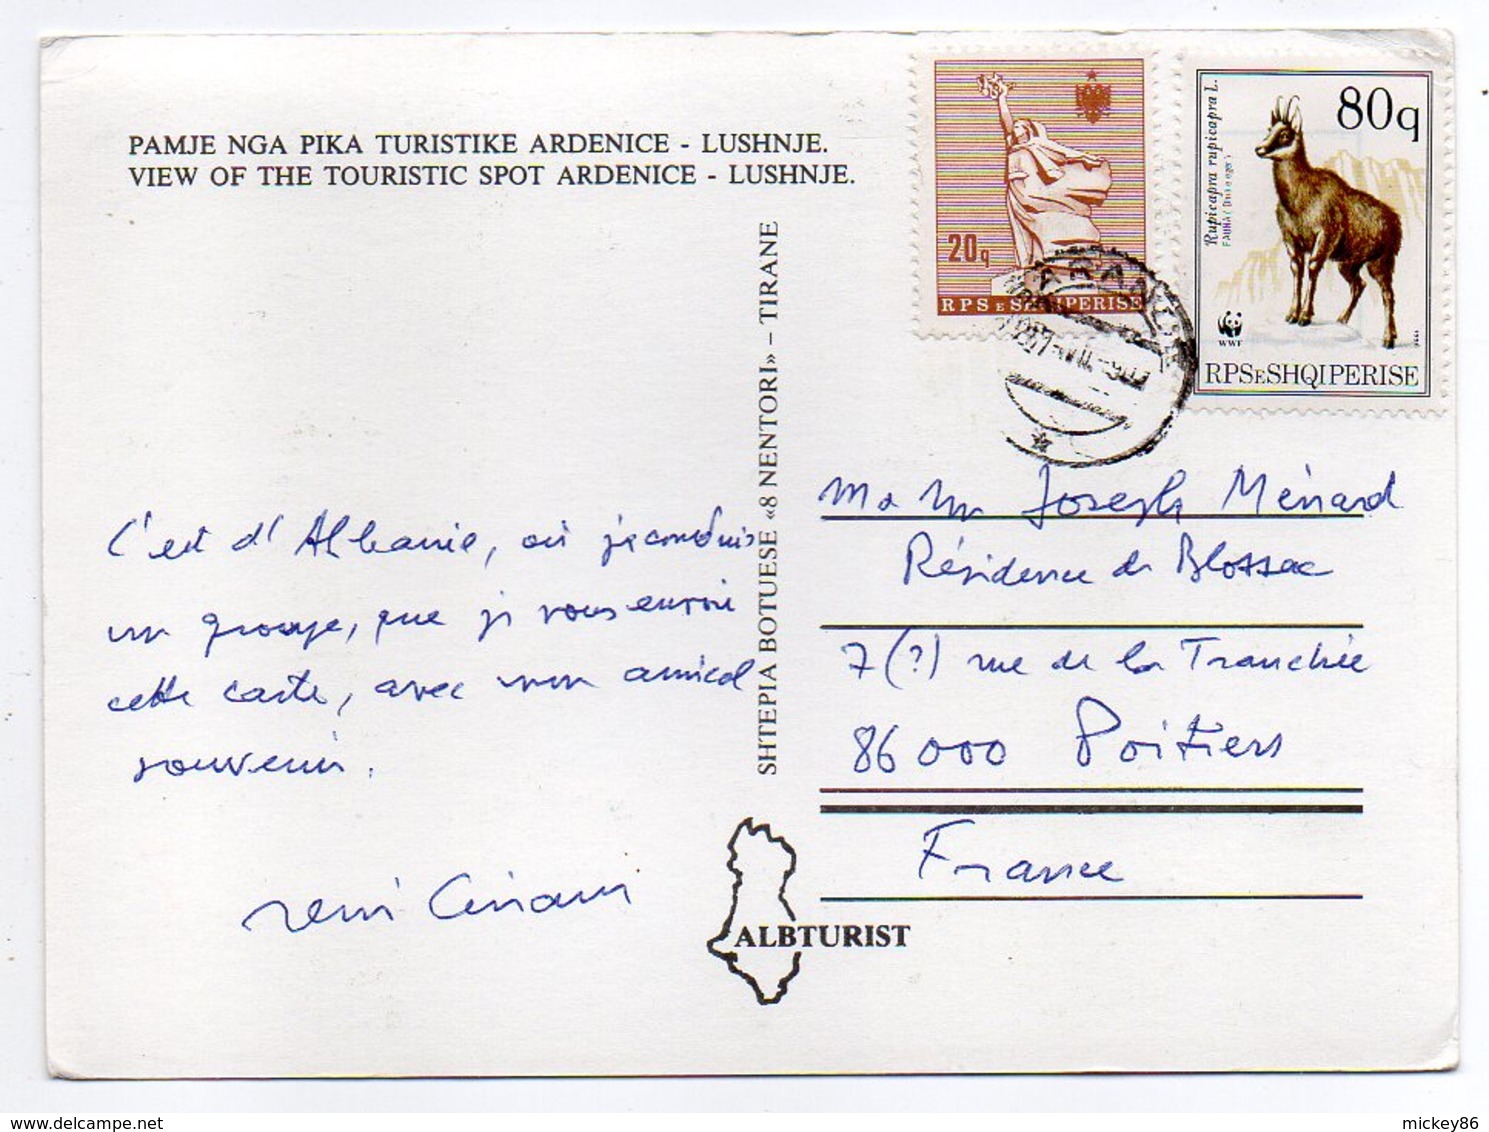 PAMJE NGA PIKA TURISTIKE ARDENICE - LUSHNJE.
VIEW OF THE TOURISTIC SPOT ARDENICE - LUSHNJE.
20q
RPS E SHQIPERISE
80q
Rupicapra rupicapra L.
WWF
RPS E SHQIPERISE
SHTEPIA BOTUESE «8 NENTORI» – TIRANE
C'est d'Albanie, où je conduis
un groupe, que je vous envoie
cette carte, avec mon amical
souvenir.
M Joseph Ménard
Résidence de Blossac
7(?) rue de la Tranchée
86000 Poitiers
France
ALBTURIST
mickey86
delcampe.net